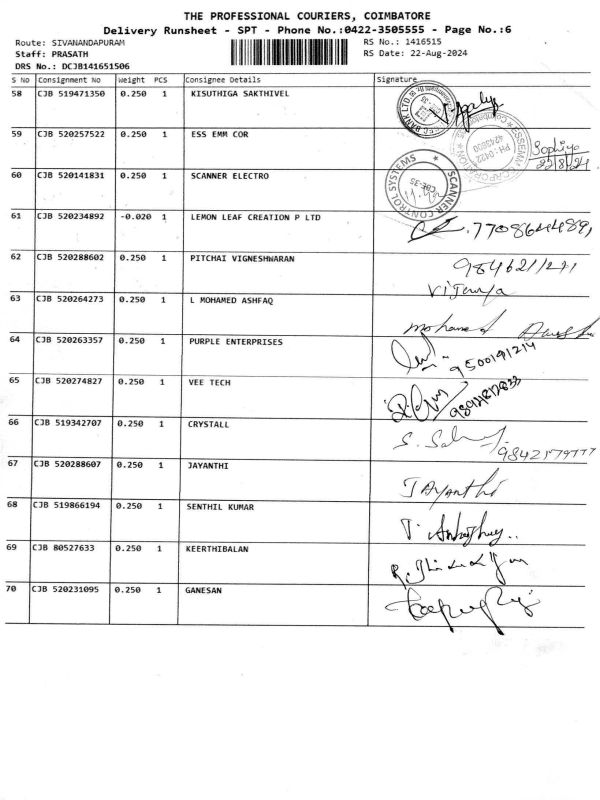 THE PROFESSIONAL COURIERS, COIMBATORE
Delivery Runsheet - SPT - Phone No.:0422-3505555 - Page No.:6
Route: SIVANANDAPURAM RS No.: 1416515
Staff: PRASATH RS Date: 22-Aug-2024
DRS No.: DCJB141651506
S No Consignment No Weight PCS Consignee Details Signature
58 CJB 519471350 0.250 1 KISUTHIGA SAKTHIVEL
59 CJB 520257522 0.250 1 ESS EMM COR
Sophiya
22/8/24
60 CJB 520141831 0.250 1 SCANNER ELECTRO
SCANNER CONTROL SYSTEMS
CBE-35
61 CJB 520234892 -0.020 1 LEMON LEAF CREATION P LTD
7708644489,
62 CJB 520288602 0.250 1 PITCHAI VIGNESHWARAN
63 CJB 520264273 0.250 1 L MOHAMED ASHFAQ
Mohamed
64 CJB 520263357 0.250 1 PURPLE ENTERPRISES
9500191214
65 CJB 520274827 0.250 1 VEE TECH
66 CJB 519342707 0.250 1 CRYSTALL
67 CJB 520288607 0.250 1 JAYANTHI
JAyanthi
68 CJB 519866194 0.250 1 SENTHIL KUMAR
69 CJB 80527633 0.250 1 KEERTHIBALAN
70 CJB 520231095 0.250 1 GANESAN